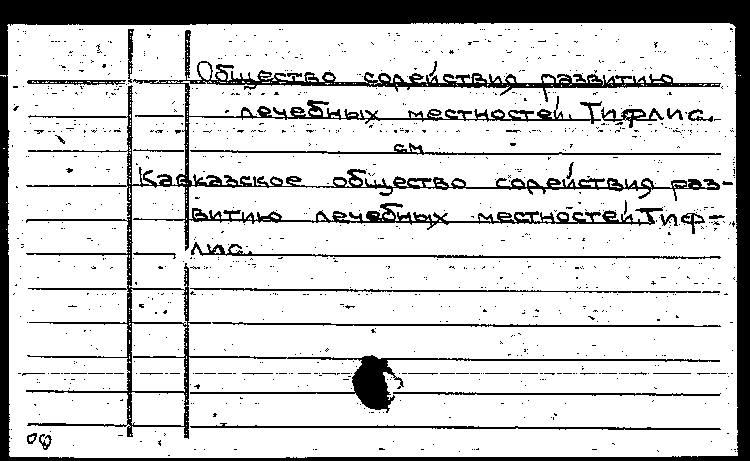 Общество содействия развитию
лечебных местностей. Тифлис.
см
Кавказское общество содействия раз-
витию лечебных местностей. Тиф-
лис.